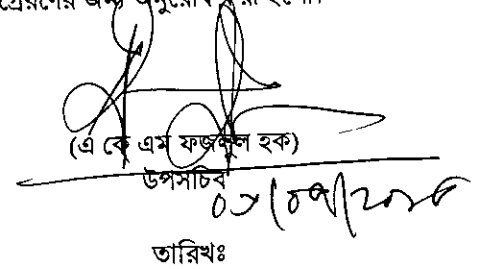 প্রেরণের জন্য অনুরোধ করা হলো।
(এ কে এম ফজলুল হক)
উপসচিব
তারিখঃ